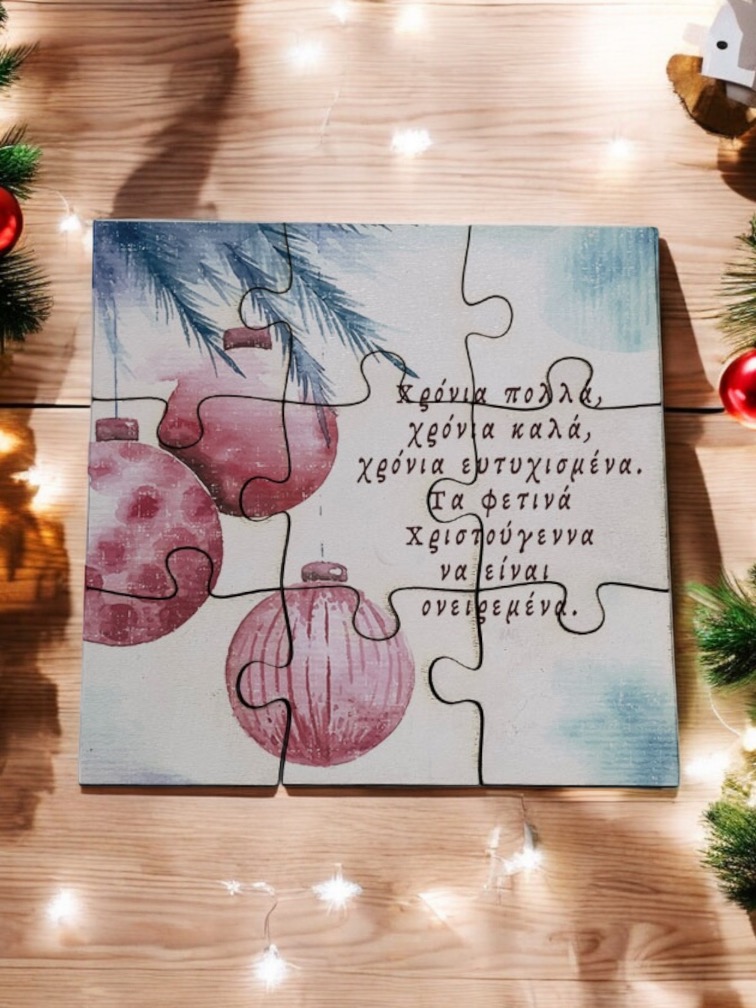 Χρόνια πολλά,
χρόνια καλά,
χρόνια ευτυχισμένα.
Τα φετινά
Χριστούγεννα
να είναι
ονειρεμένα.